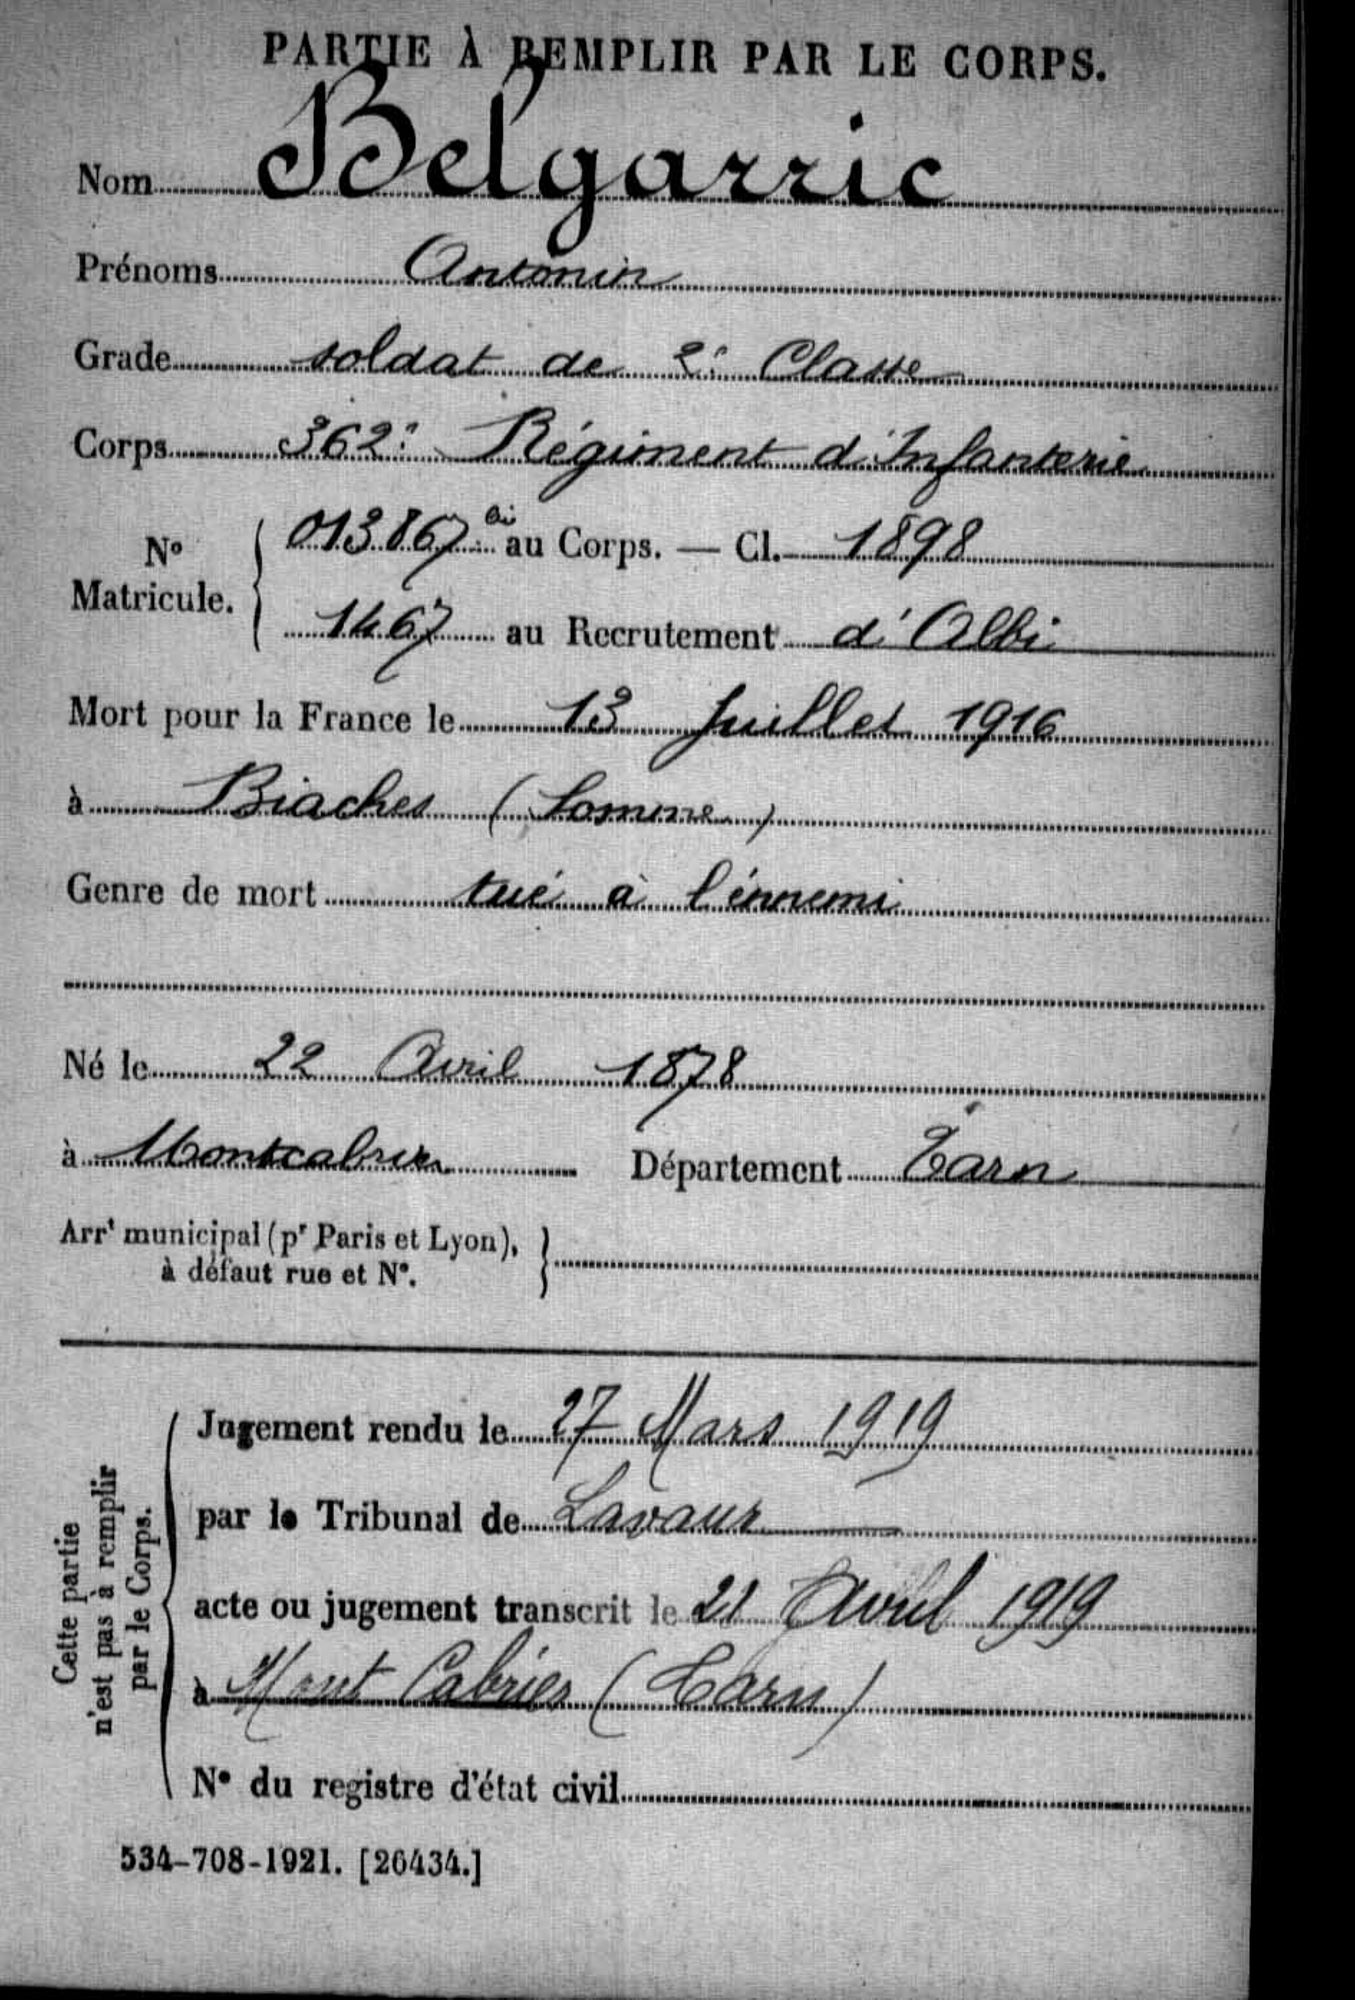 PARTIE À REMPLIR PAR LE CORPS.
Nom Belgarric
Prénoms Antonin
Grade soldat de 2e Classe
Corps 362e Régiment d'Infanterie
No Matricule. 013867 bis au Corps. — Cl. 1898
1467 au Recrutement d'Albi
Mort pour la France le 13 Juillet 1916
à Biaches (Somme)
Genre de mort tué à l'énnemi
Né le 22 Avril 1878
à Montcabrier Département Tarn
Arrt municipal (pr Paris et Lyon),
à défaut rue et N°.
Cette partie
n'est pas à remplir
par le Corps.
Jugement rendu le 27 Mars 1919
par le Tribunal de Lavaur
acte ou jugement transcrit le 21 Avril 1919
à Mont Cabrier (Tarn)
N° du registre d'état civil
534-708-1921. [26434.]